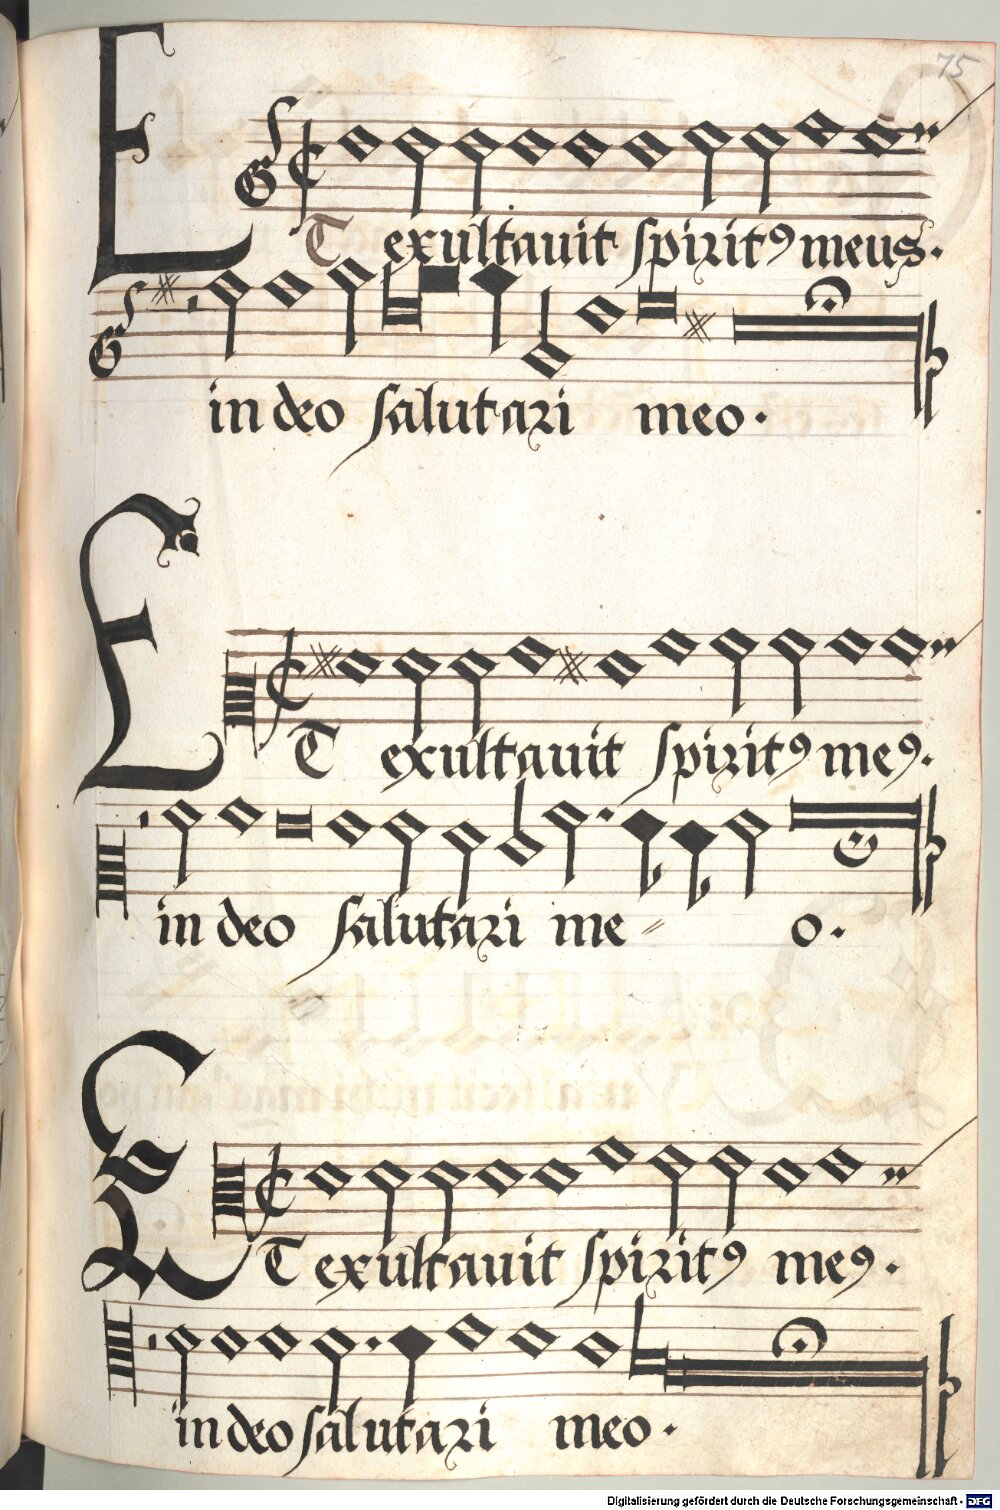 75
ET exultauit spiritꝰ meus.
in deo salutari meo.
ET exultauit spiritꝰ meꝰ.
in deo salutari me〃 o.
ET exultauit spiritꝰ meꝰ.
in deo salutari meo.
Digitalisierung gefördert durch die Deutsche Forschungsgemeinschaft - DFG